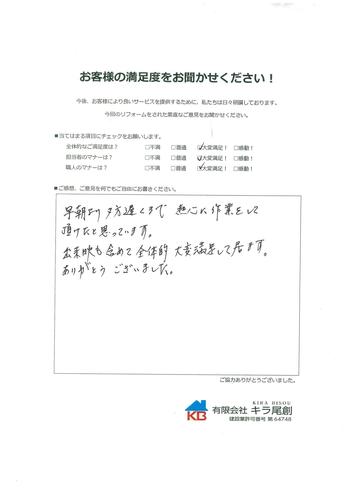 お客様の満足度をお聞かせください！
今後、お客様により良いサービスを提供するために、私たちは日々研鑽しております。
今回のリフォームをされた素直なご意見をお聞かせください。
■当てはまる項目にチェックをお願いします。
全体的なご満足度は？ □不満 □普通 ☑大変満足！ □感動！
担当者のマナーは？ □不満 □普通 ☑大変満足！ □感動！
職人のマナーは？ □不満 □普通 ☑大変満足！ □感動！
■ご感想、ご意見を何でもご自由にお書きください。
早朝より夕方遅くまで 熱心に作業をして
頂けたと思っています。
出来映も含めて全体的 大変満足して居ます。
ありがとうございました。
ご協力ありがとうございました。
KIRA BISOU
KB 有限会社 キラ尾創
建設業許可番号 第64748